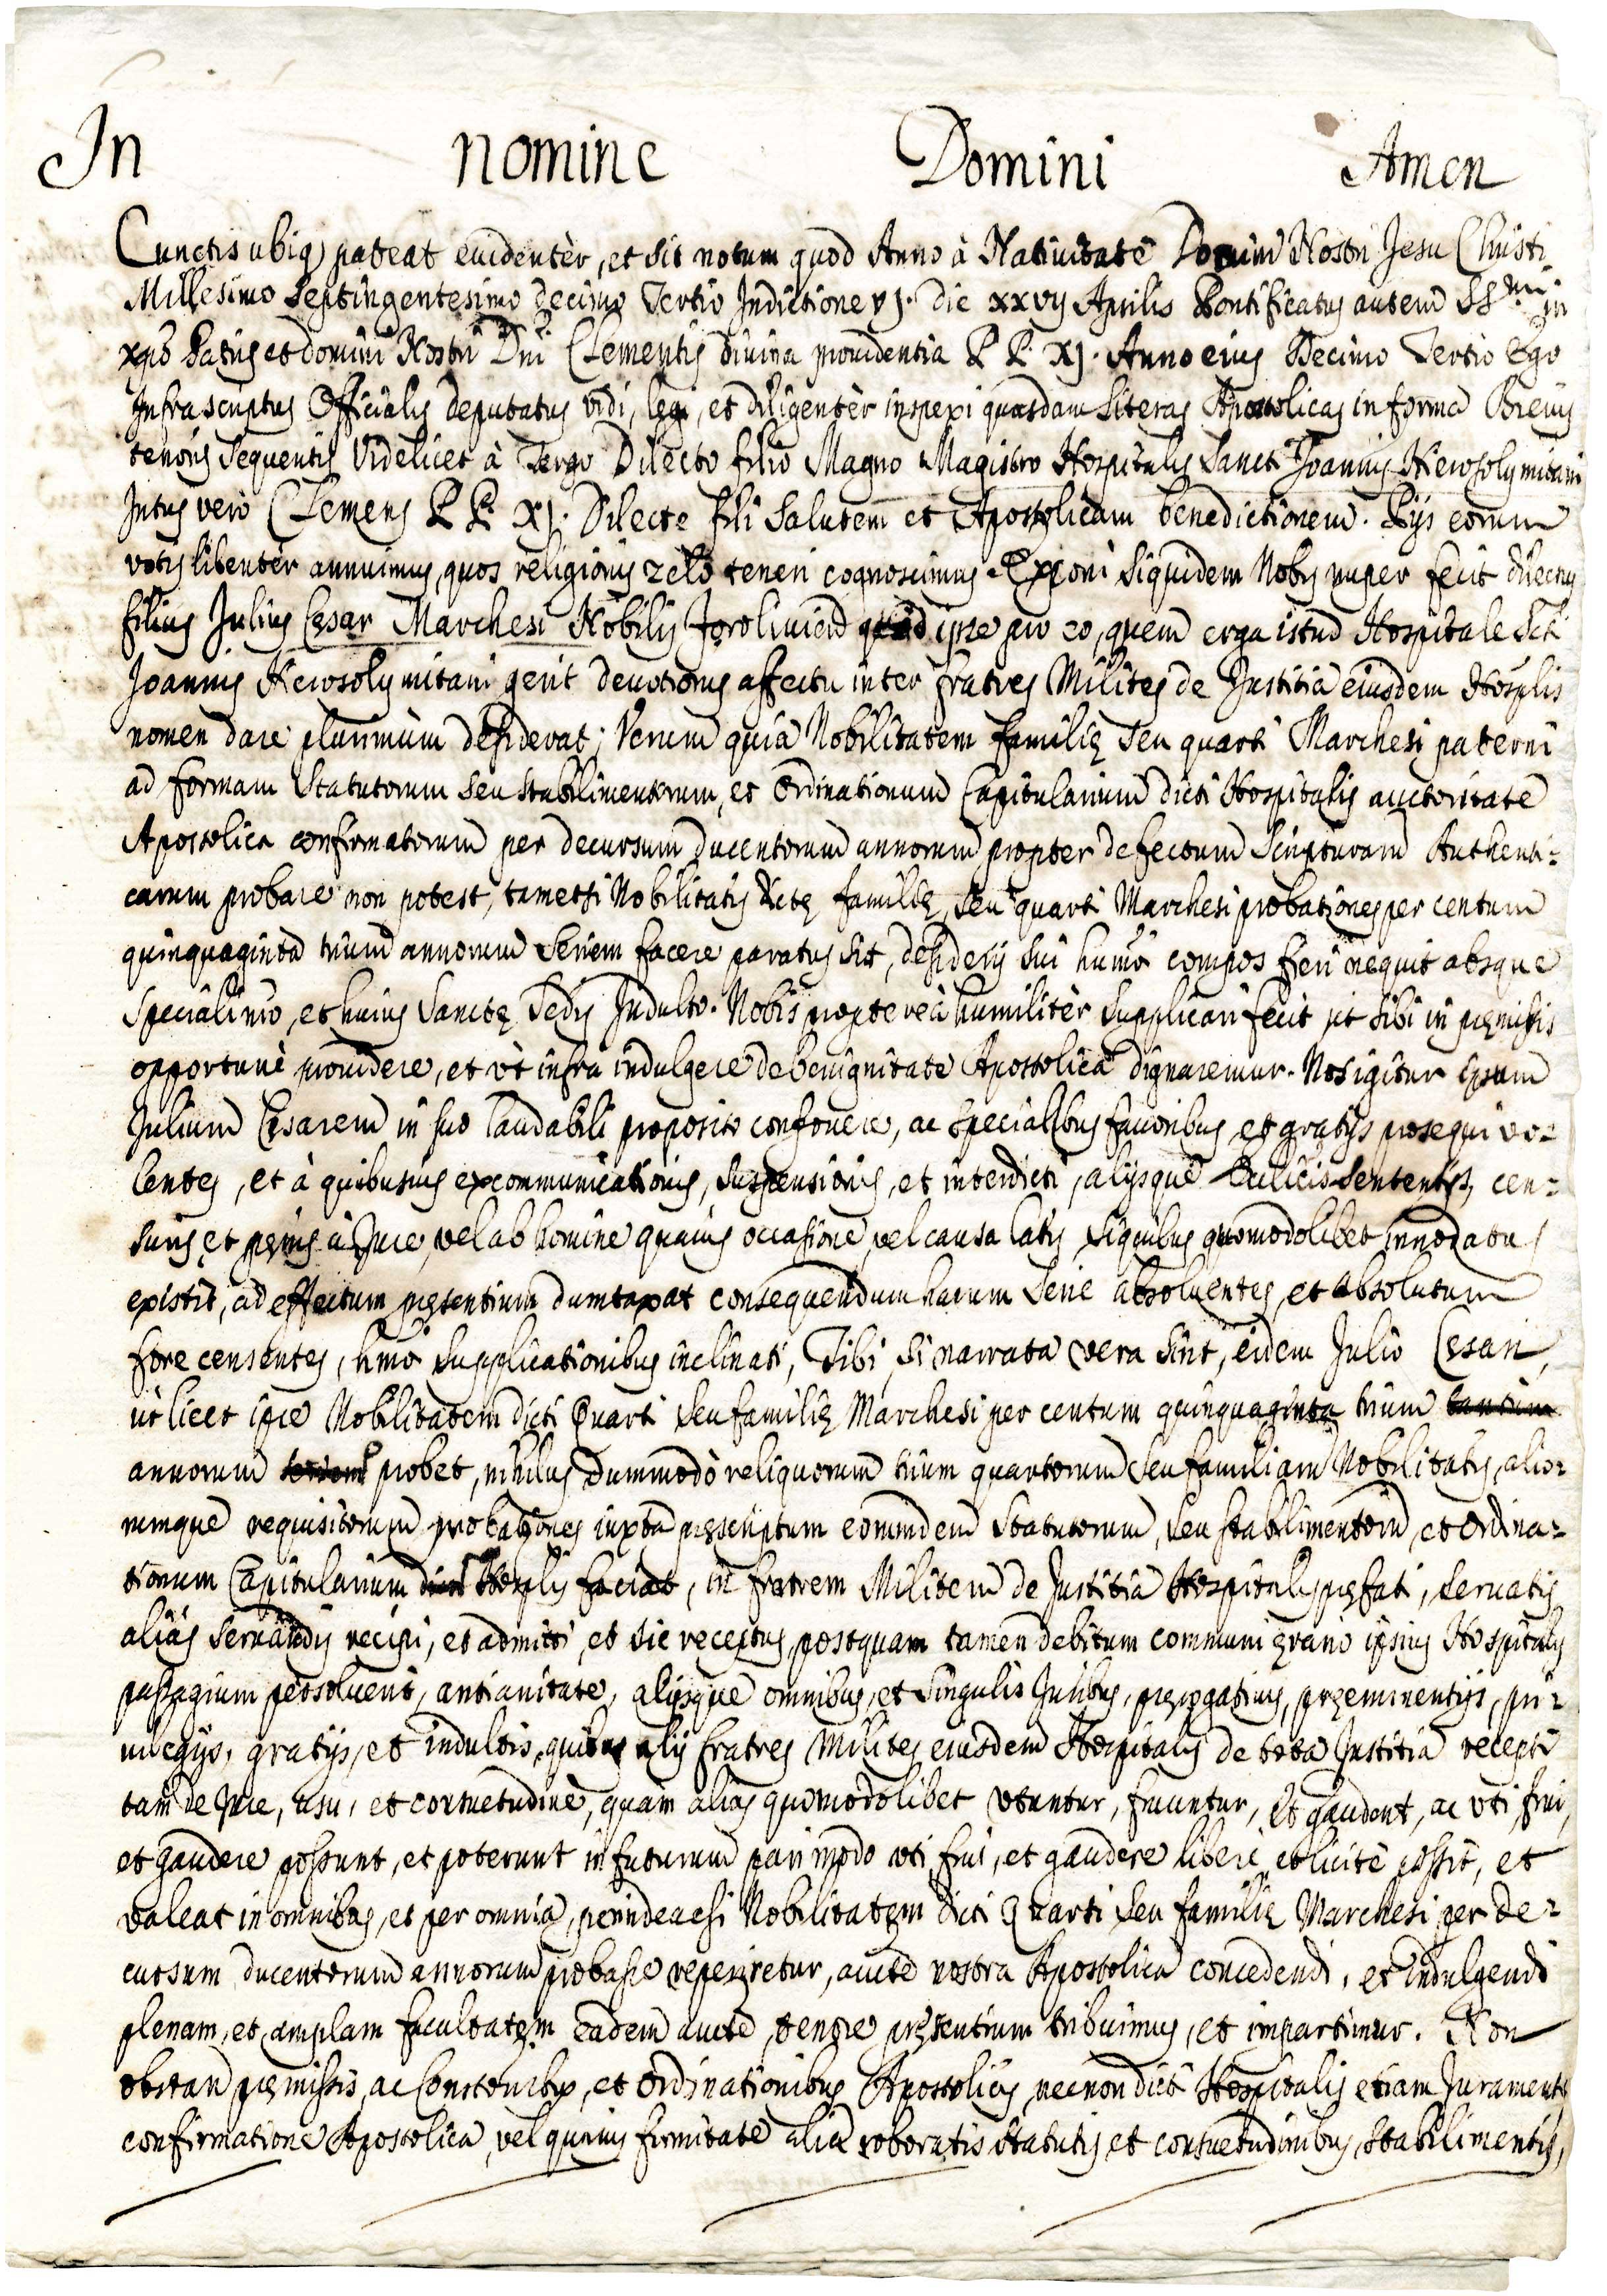 In nomine Domini Amen
Cunctis ubiq pateat euidentèr, et sit notum quod Anno à Natiuitate Domini Nostri Jesu Christi
Millesimo Septingentesimo decimo Tertio Indictione vj. die xxvij Aprilis Pontificatus autem SSmi in
xpo Patris et domini Nostri Dni Clementis diuina prouidentia P P. XJ. Anno eius Decimo Tertio Ego
Infrascriptus Officialis deputatus vidi, legi, et diligentèr inspexi quasdam Literas Apostolicas in forma Breuis
tenoris sequentis Videlicet à Tergo Dilecto filio Magno Magistro Hospitalis Sancti Joannis Hierosolymitani
Intus verò Clemens P P. XJ. Dilecte fili Salutem et Apostolicam benedictionem. Pijs eorum
votis libentèr annuimus, quos religionis zelo teneri cognoscimus. Exponi siquidem Nobis nuper fecit dilectus
filius Julius Cęsar Marchesi Nobilis foroliuien quod ipse pro eo, quem erga istud Hospitale Sti
Joannis Hierosolymitani gerit deuotionis affectu inter fratres Milites de Justitia eiusdem Hosplis
nomen dare plurimùm desiderat; Verum quia Nobilitatem familię seu quarti Marchesi paterni
ad formam Statutorum seu stabilimentorum, et Ordinationum Capitularium dicti Hospitalis auctoritate
Apostolica confirmatorum per decursum ducentorum annorum propter defectum Scripturarum Authenti-
carum probare non potest, tametsi Nobilitatis dictę familię, seu quarti Marchesi probationes per centum
quinquaginta trium annorum seriem facere paratus sit, desiderij sui humoi compos fieri nequit absque
speciali nro, et huius Sanctę Sedis Indulto. Nobis proptereà humilitèr supplicari fecit ut sibi in pręmissis
opportunè prouidere, et vt infra indulgere de benignitate Apostolica dignaremur. Nos igitur ipsum
Julium Cęsarem in suo laudabili proposito confouere, ac specialibus fauoribus, et gratijs prosequi vo-
lentes, et à quibusuis excommunicationis, suspensionis, et interdicti, alijsque Ecclicis sententijs, cen-
suris et pęnis à Jure, vel ab homine quauis occasione, vel causa latis siquibus quomodolibet innodatus
existit, ad effectum pręsentium dumtaxat consequendum harum serie absoluentes, et absolutum
fore censentes, hmoi supplicationibus inclinati, Tibi, si narrata vera sint, eidem Julio Cęsari,
ut licet ipse Nobilitatem dicti Quarti seu familię Marchesi per centum quinquaginta trium tantum
annorum probet, nihilus dummodò reliquorum trium quartorum seu familiarum Nobilitatis, alio-
rumque requisitorum probationes iuxta pręscriptum eorumdem Statutorum, seu stabilimentorum, et Ordina-
tionum Capitularium dicti Hosplis faciat, in fratrem Militem de Justitia Hospitalis pręfati, seruatis
aliàs seruandis recipi, et admitti, et sic receptus, postquam tamen debitum communi ęrario ipsius Hospitalis
passagium persoluerit, antianitate, alijsque omnibus, et singulis Juribus, pręrogatiuis, pręeminentijs, pri-
uilegijs, gratijs, et indultis, quibus alij fratres Milites eiusdem Hospitalis de tota Justitia recepti
tam de Jure, usu, et consuetudine, quàm aliàs quomodolibet vtuntur, fruuntur, et gaudent, ac vti, frui,
et gaudere possunt, et poterunt in futurum pari modo vti frui, et gaudere liberè, et licitè possit, et
valeat in omnibus, et per omnia, perinde ac si Nobilitatem dicti Quarti seu familię Marchesi per de-
cursum ducentorum annorum probasse reperiretur, aucte nostra Apostolica concedendi, et indulgendi
plenam, et amplam facultatem eadem aucte, tenore pręsentium tribuimus, et impartimur. Non
obstan pręmissis, ac Constonibus, et Ordinationibus Apostolicis, necnon dicti Hospitalis etiam Juramento
confirmatione Apostolica, vel quauis firmitate alia roboratis statutis, et consuetudinibus, stabilimentis,